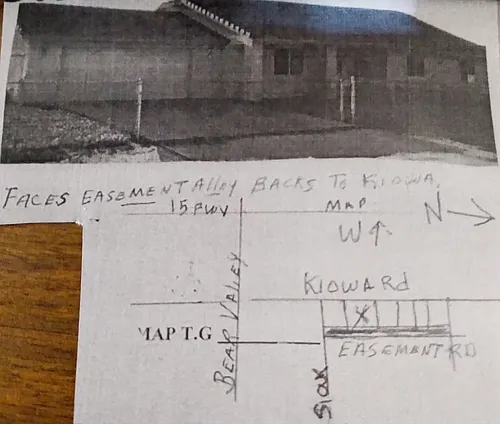 FACES EASEMENT Alley BACKS To KIOWA.
15 FWY MAP N
W
KIOWA Rd
BEAR VALLEY
X
MAP T.G
EASEMENT RD